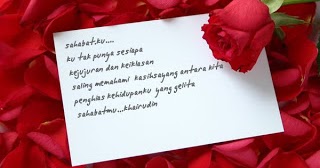 sahabat.ku....
ku tak punya sesiapa
kejujuran dan keiklasan
saling memahami kasihsayang antara kita
penghias kehidupanku yang gelita
sahabatmu...khairudin